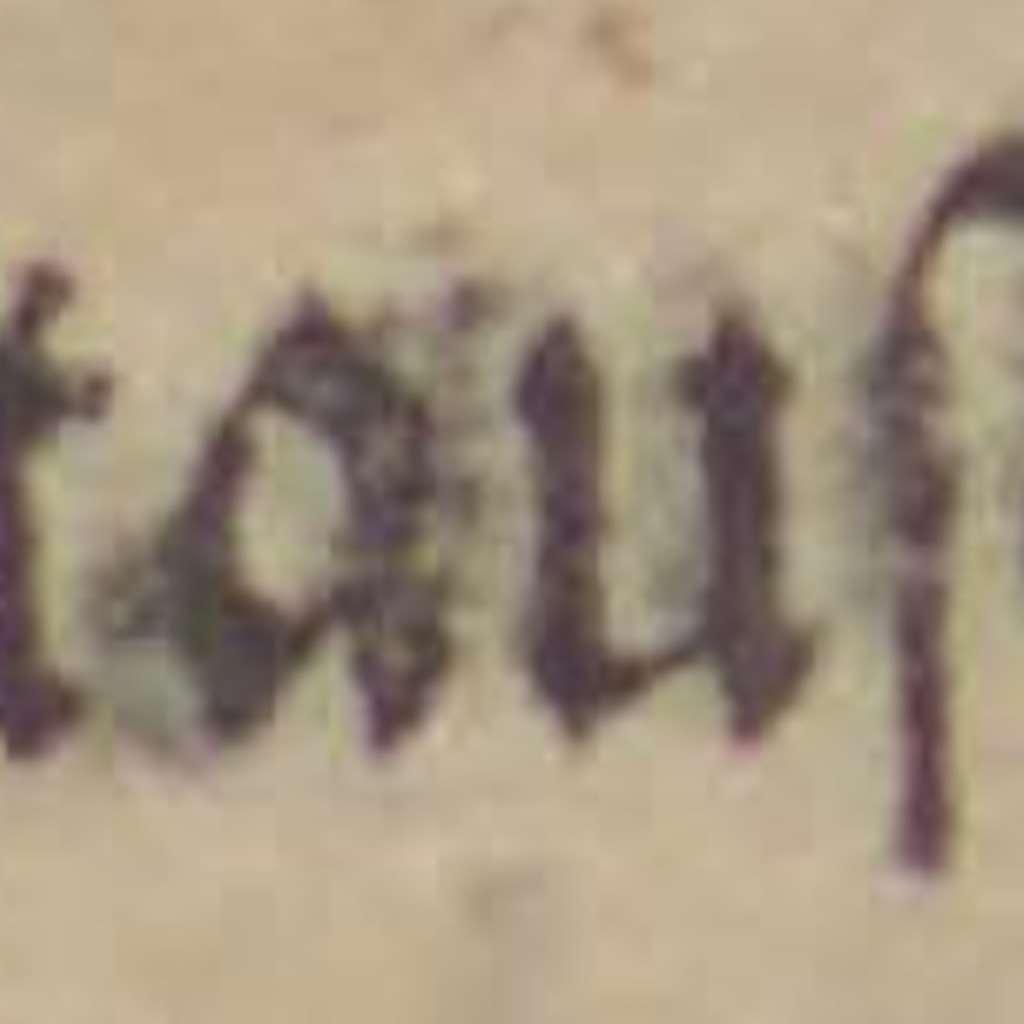 tauſ